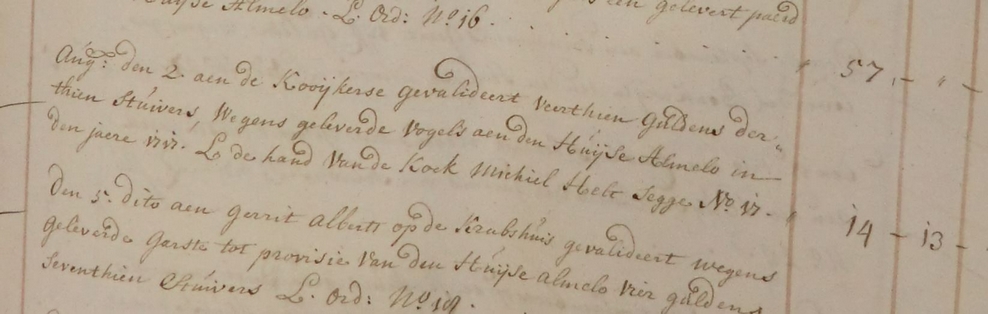 een gelevert paerd
Huijse Almelo. L. Ord: No. 16. 57,-"-
Aug: den 2. aen de Kooijkerse gevalideert veerthien guldens der„
thien Stuivers, Wegens geleverde vogels aen den Huijse Almelo in
den jaere 1717. L de hand van de Kock Michiel Helt Segge No. 17. 14-13-
Den 5. dito aen gerrit alberts op de Krubshuis gevalideert wegens
geleverde garste tot provisie van den Huijse almelo vier guldens
seventhien Stuivers L. Ord: No. 18.